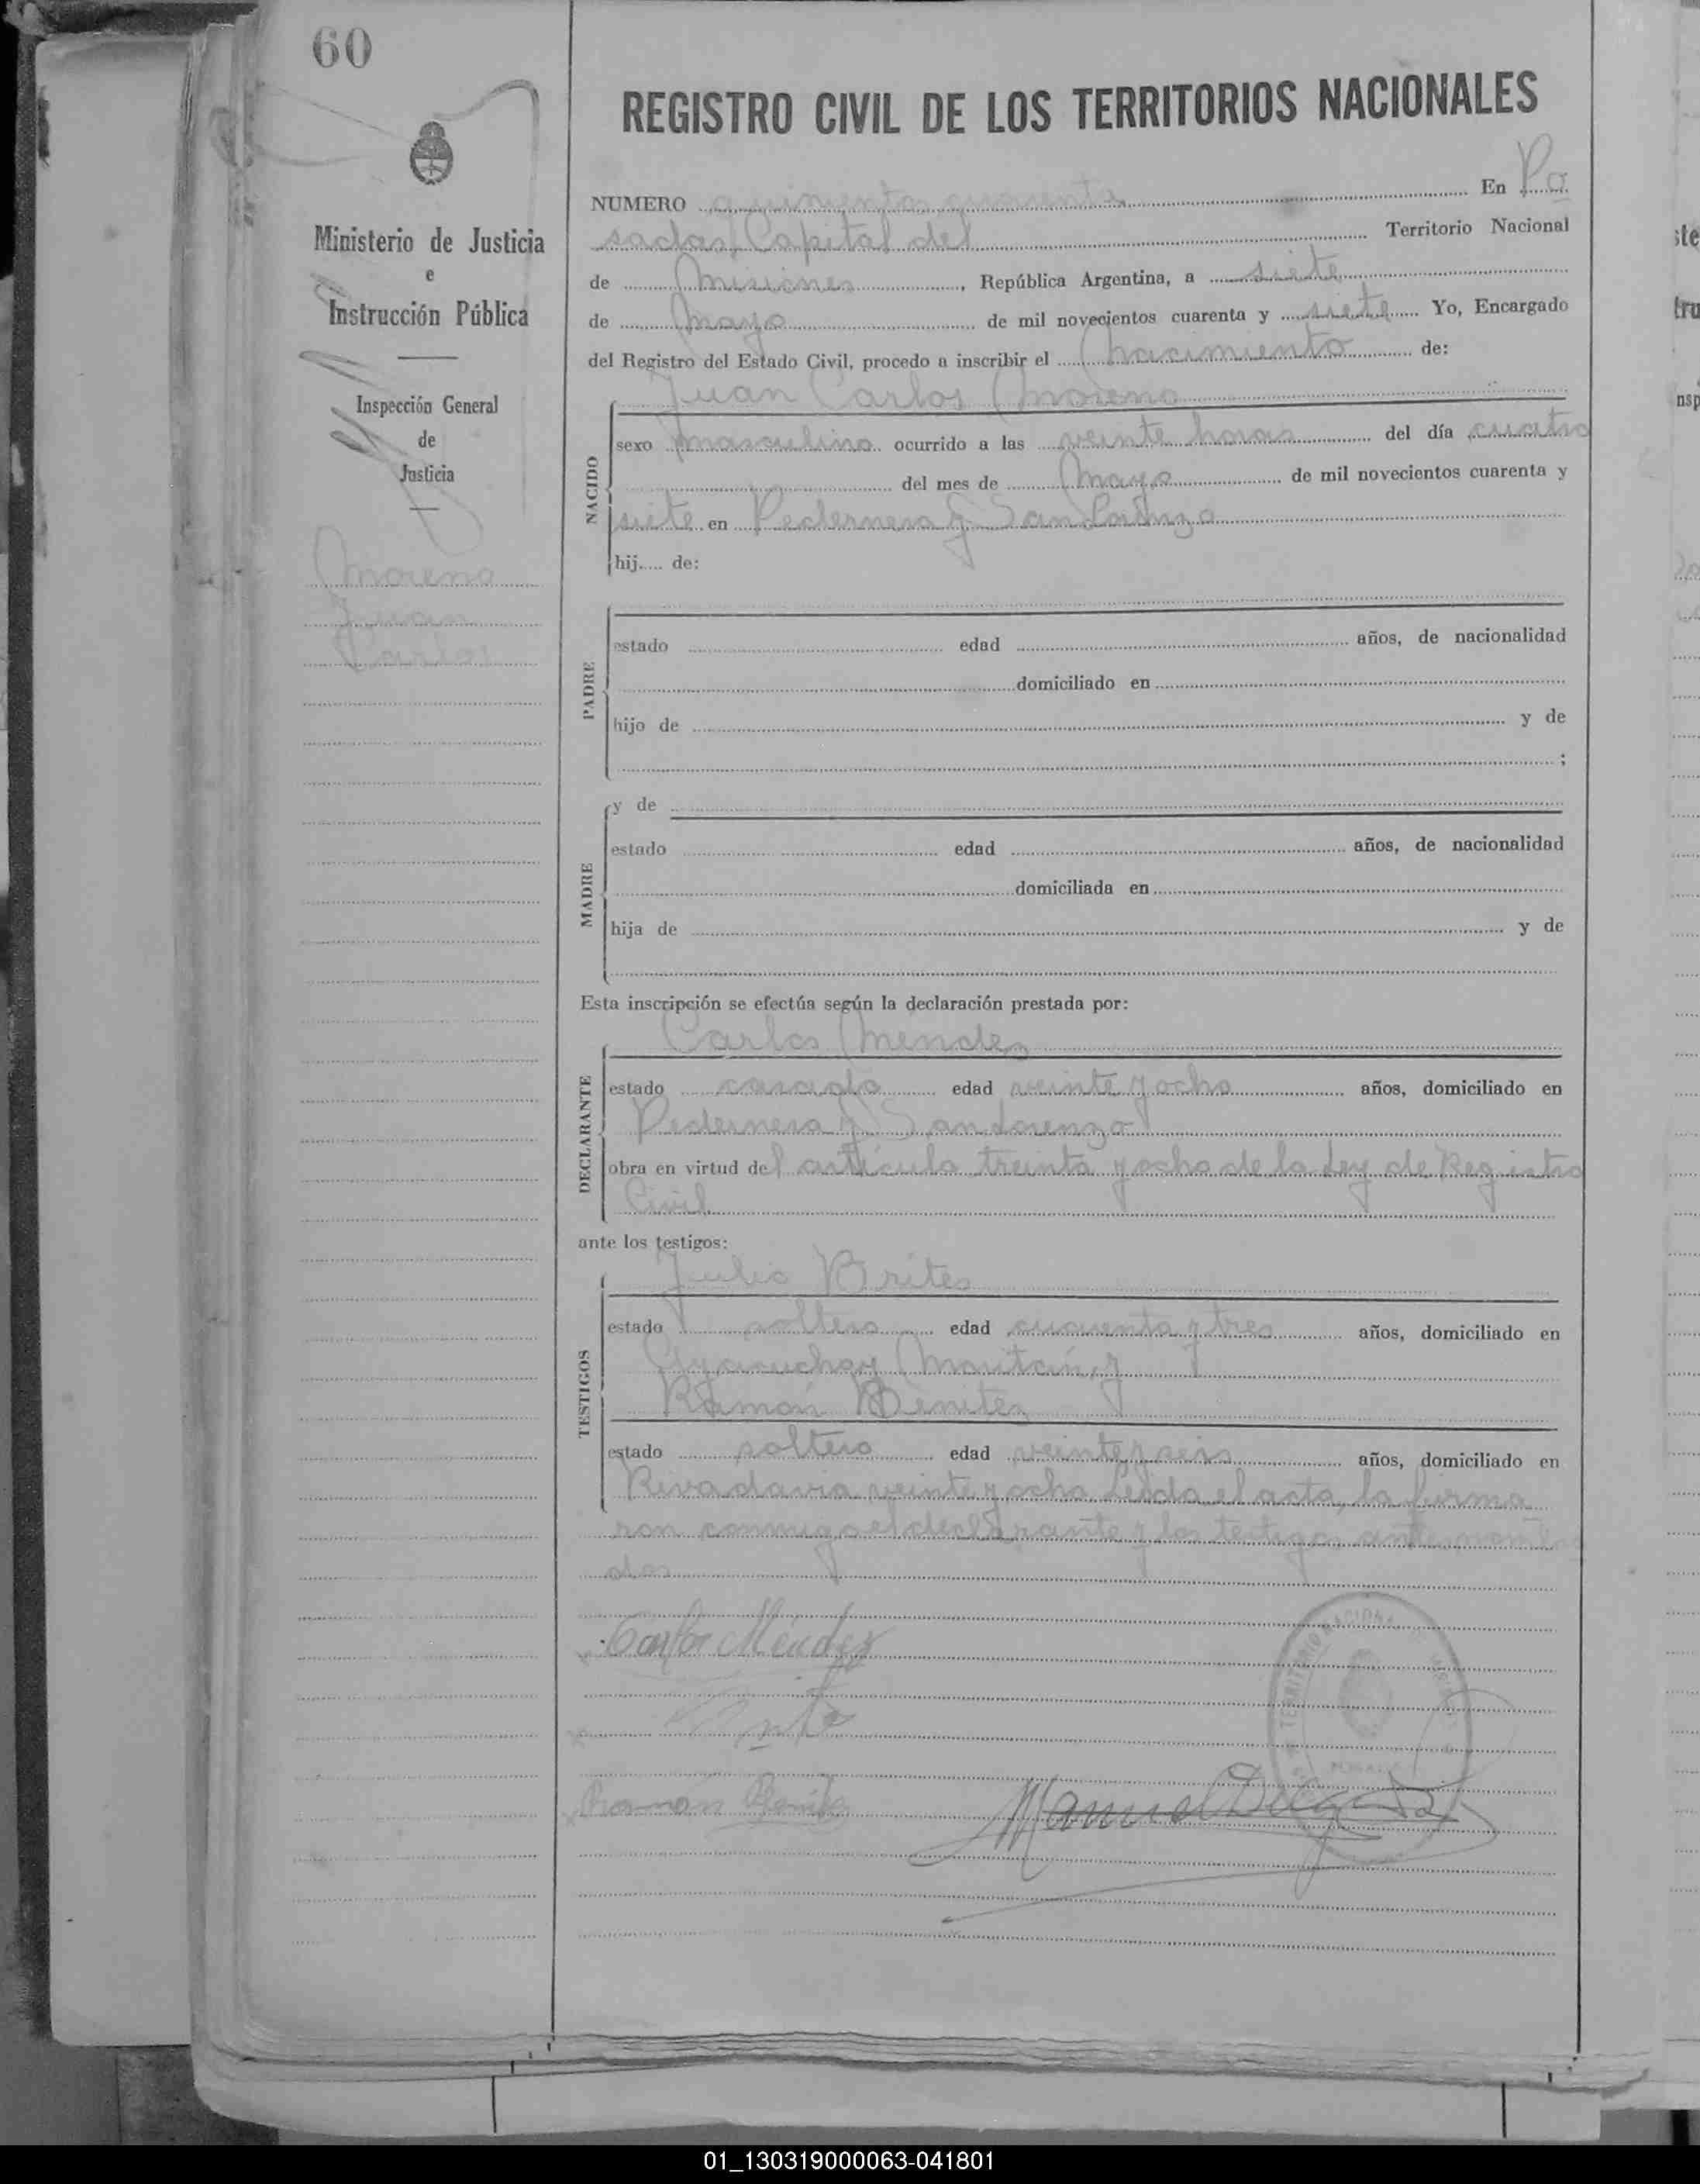 60
REGISTRO CIVIL DE LOS TERRITORIOS NACIONALES
NUMERO quinientos cuarenta En Po
sadas, Capital del Territorio Nacional
de Misiones, República Argentina, a siete
de Mayo de mil novecientos cuarenta y siete Yo, Encargado
del Registro del Estado Civil, procedo a inscribir el nacimiento de:
Juan Carlos Moreno
NACIDO
sexo masculino ocurrido a las veinte horas del día cuatro
del mes de Mayo de mil novecientos cuarenta y
siete en Pedernera y San Lorenzo
hij.... de:
PADRE
estado edad años, de nacionalidad
domiciliado en
hijo de y de
;
MADRE
y de
estado edad años, de nacionalidad
domiciliada en
hija de y de
Esta inscripción se efectúa según la declaración prestada por:
Carlos Mendez
DECLARANTE
estado casado edad veinte y ocho años, domiciliado en
Pedernera y San Lorenzo
obra en virtud del artículo treinta y ocho de la Ley de Registro
Civil
ante los testigos:
Julio Brites
TESTIGOS
estado soltero edad cuarenta y tres años, domiciliado en
Ayacucho y
Ramón Benitez
estado soltero edad veinte y seis años, domiciliado en
Rivadavia veinte y ocho. Leida el acta, la firma
ron conmigo el declarante y los testigos
dos
Carlos Méndez
Ramón Benitez
Manuel
Ministerio de Justicia
e
Instrucción Pública
Inspección General
de
Justicia
Moreno
Juan
Carlos
TERRITORIO NACIONAL
01_130319000063-041801